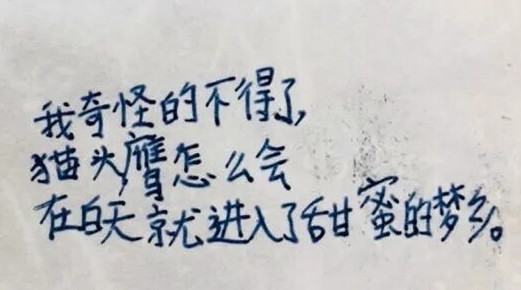 我奇怪的不得了,
猫头鹰怎么会
在白天就进入了甜蜜的梦乡。